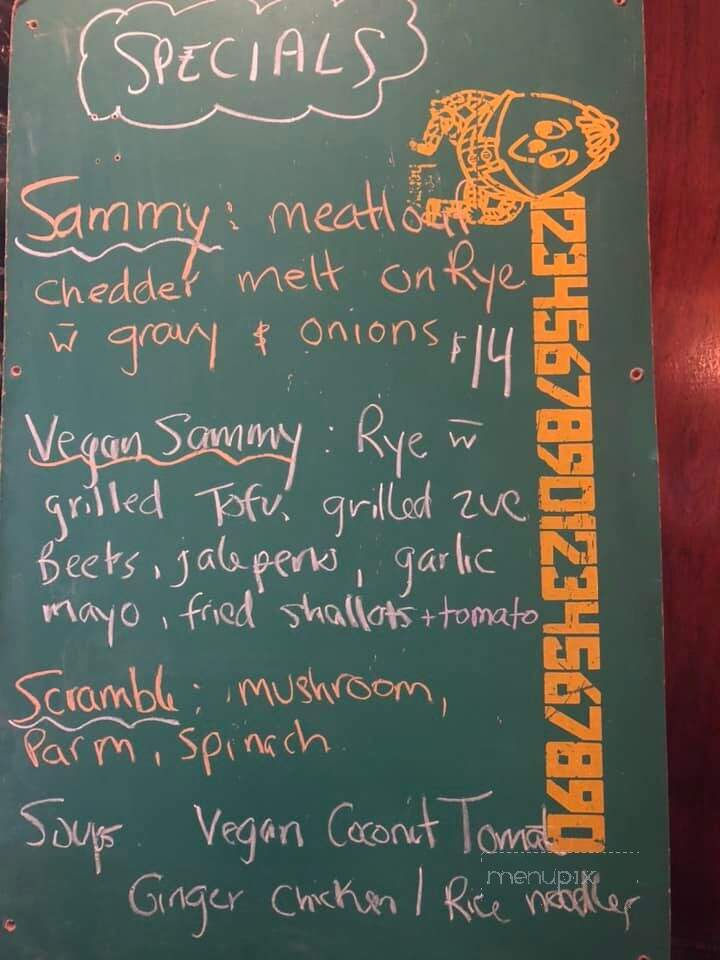 SPECIALS
Sammy: meatloaf
chedder melt on Rye
w̄ gravy & onions $14
Vegan Sammy: Rye w̄
grilled Tofu, grilled zuc
Beets, jalepeno, garlic
mayo, fried shallots + tomato
Scramble: mushroom,
Parm, spinach
Soups Vegan Coconut Tomato
Ginger Chicken / Rice noodles
12345678901234567890
menupix